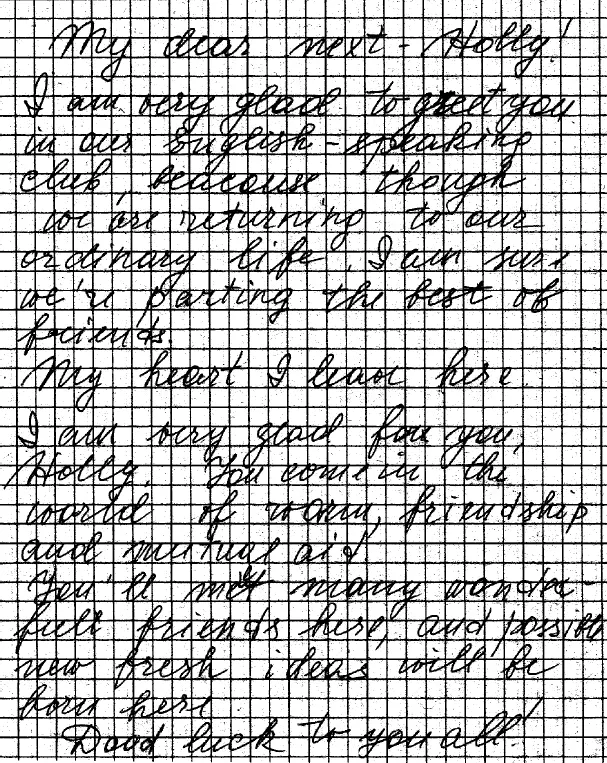 My dear next - Holly!
I am very glad to greet you
in our English - speaking
club, beacouse though
we are returning to our
ordinary life, I am sure
we're parting the best of
friends.
My heart I leave here.
I am very glad for you,
Holly. You come in the
world of warm, friendship
and mutual aid.
You'll met many wonder-
full friends here, and possible
new fresh ideas will be
born here
Dood luck to you all!